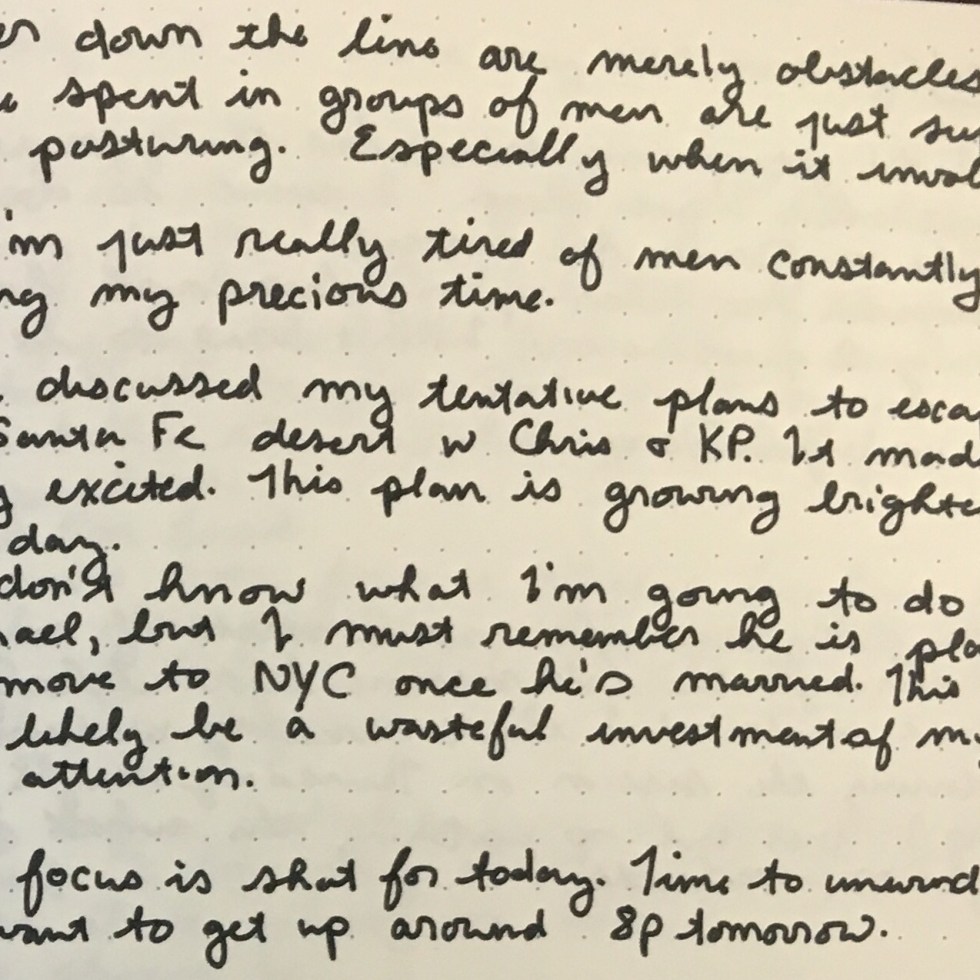 down the line are merely obstacles
spent in groups of men are just su
posturing. Especially when it invol
'm just really tired of men constantly
ng my precious time.
discussed my tentative plans to esca
Santa Fe desert w Chris & KP. It mad
y excited. This plan is growing brighte
day.
don't know what I'm going to do
hael, but I must remember he is pla
move to NYC once he's married. This
likely be a wasteful investment of my
attention.
focus is shot for today. Time to unwind
want to get up around 8p tomorrow.